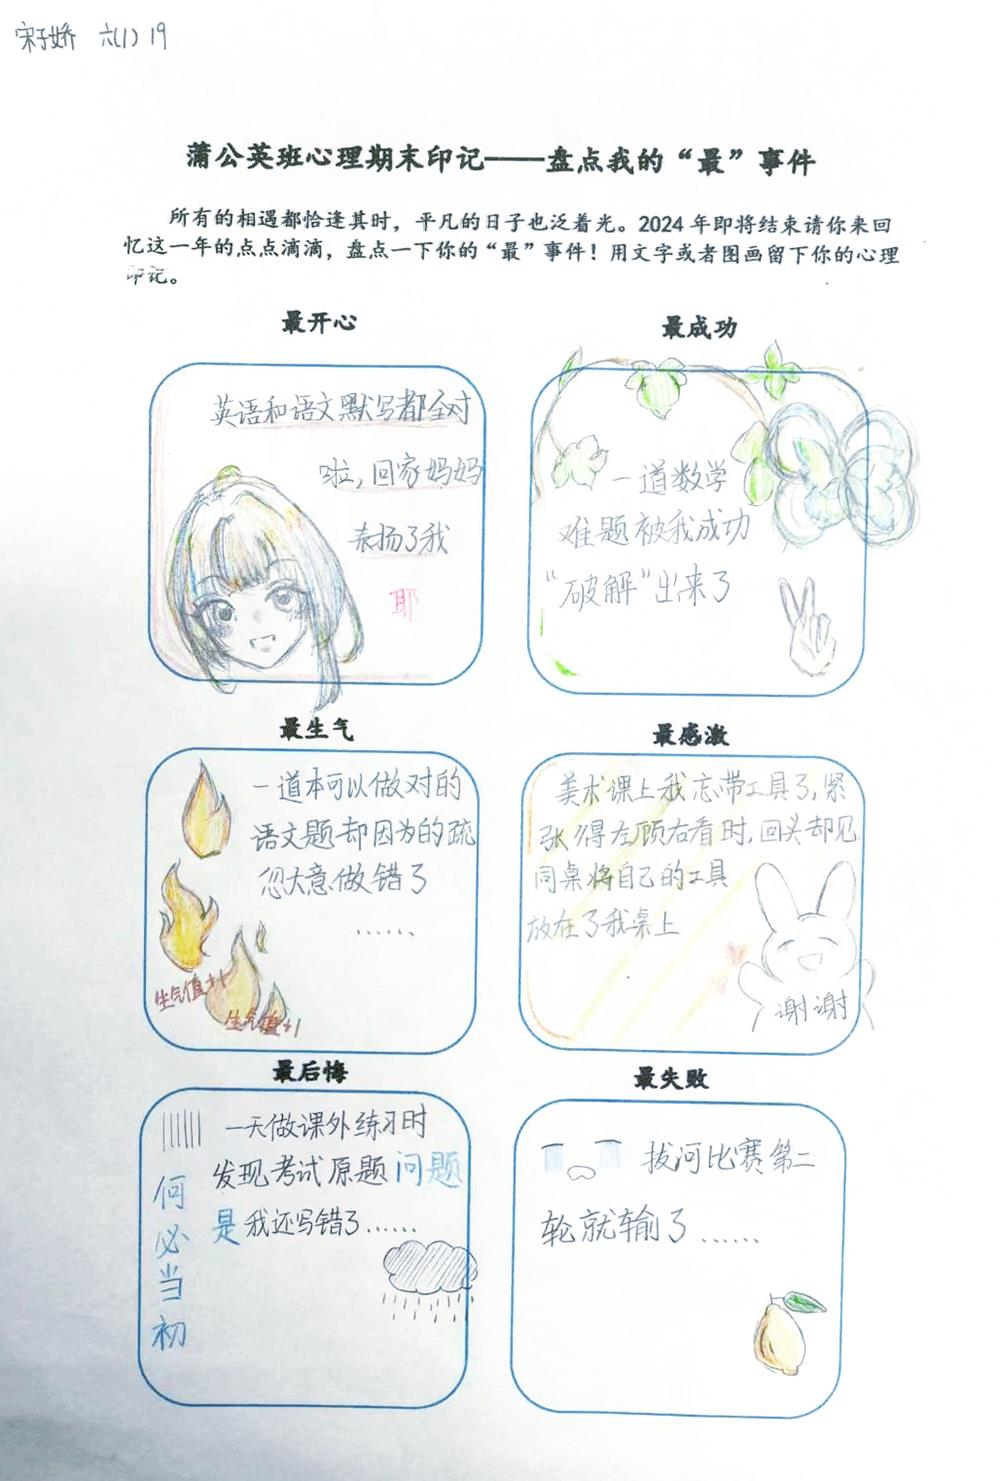 宋子娇 六(1) 19
蒲公英班心理期末印记——盘点我的“最”事件
所有的相遇都恰逢其时，平凡的日子也泛着光。2024 年即将结束请你来回
忆这一年的点点滴滴，盘点一下你的“最”事件！用文字或者图画留下你的心理
印记。
最开心
英语和语文默写都全对
啦，回家妈妈
表扬了我
耶
最成功
一道数学
难题被我成功
“破解”出来了
最生气
一道本可以做对的
语文题却因为的疏
忽大意做错了
……
生气值+1
生气值+1
最感激
美术课上我忘带工具了，紧
张得左顾右看时，回头却见
同桌将自己的工具
放在了我桌上
谢谢
最后悔
一天做课外练习时
发现考试原题问题
是我还写错了……
何必当初
最失败
拔河比赛第二
轮就输了……